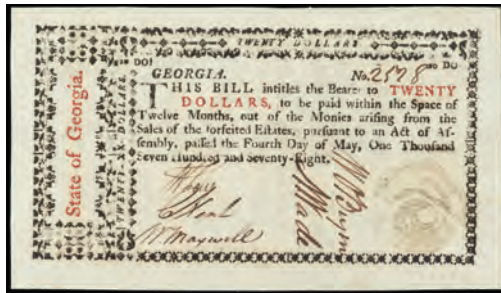 State of Georgia.
TWENTY-XX-DOLLARS.
TWENTY DOLLARS
DO!
DO
GEORGIA.
No. 2578
THIS BILL intitles the Bearer to TWENTY
DOLLARS, to be paid within the Space of
Twelve Months, out of the Monies arising from the
Sales of the forfeited Estates, pursuant to an Act of As-
sembly, passed the Fourth Day of May, One Thousand
Seven Hundred and Seventy-Eight.
Wm Maxwell
Wade